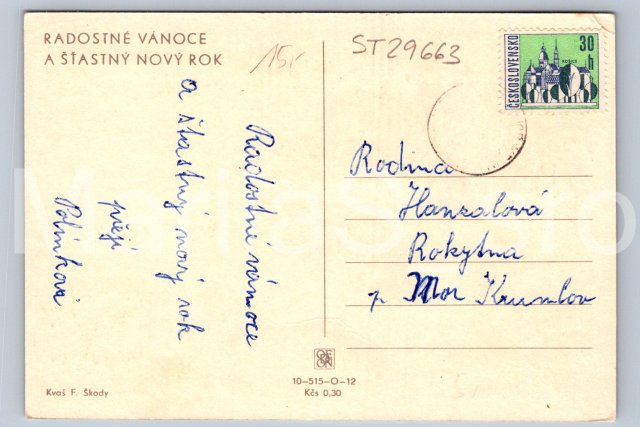 RADOSTNÉ VÁNOCE
A ŠŤASTNÝ NOVÝ ROK
15,-
ST29663
ČESKOSLOVENSKO
30
h
KOŠICE
Radostné vánoce
a šťastný nový rok
přejí
Polínkovi
Rodina
Hanzalová
Rokytna
p Mor Krumlov
Kvaš F. Škody
ODEON
10-515-O-12
Kčs 0,30